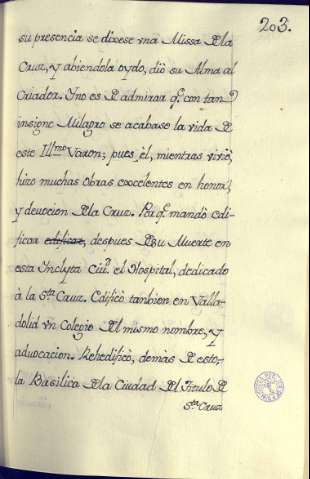 203.
su presencia se dixese vna Missa Dela
Cruz, y abiendola oydo, dió su Alma al
Criador. Yno es D admirar q̃. con tan
insigne Milagro se acabase la vida D
este Ill.mo Varon; pues él, mientras vivió,
hizo muchas obras excelentes en honor,
y devocion Dla Cruz. Por q̃. mandó edi-
ficar edificar, despues D su Muerte en
esta Ynclyta Ciu.d el Hospital, dedicado
à la S.ta Cruz. Edificò tambien en Valla-
dolid vn Colegio Del mismo nombre, y
advocacion. Rehedificò, demàs D esto,
la Basilica Dla Ciudad Del Titulo D
S.ta Cruz